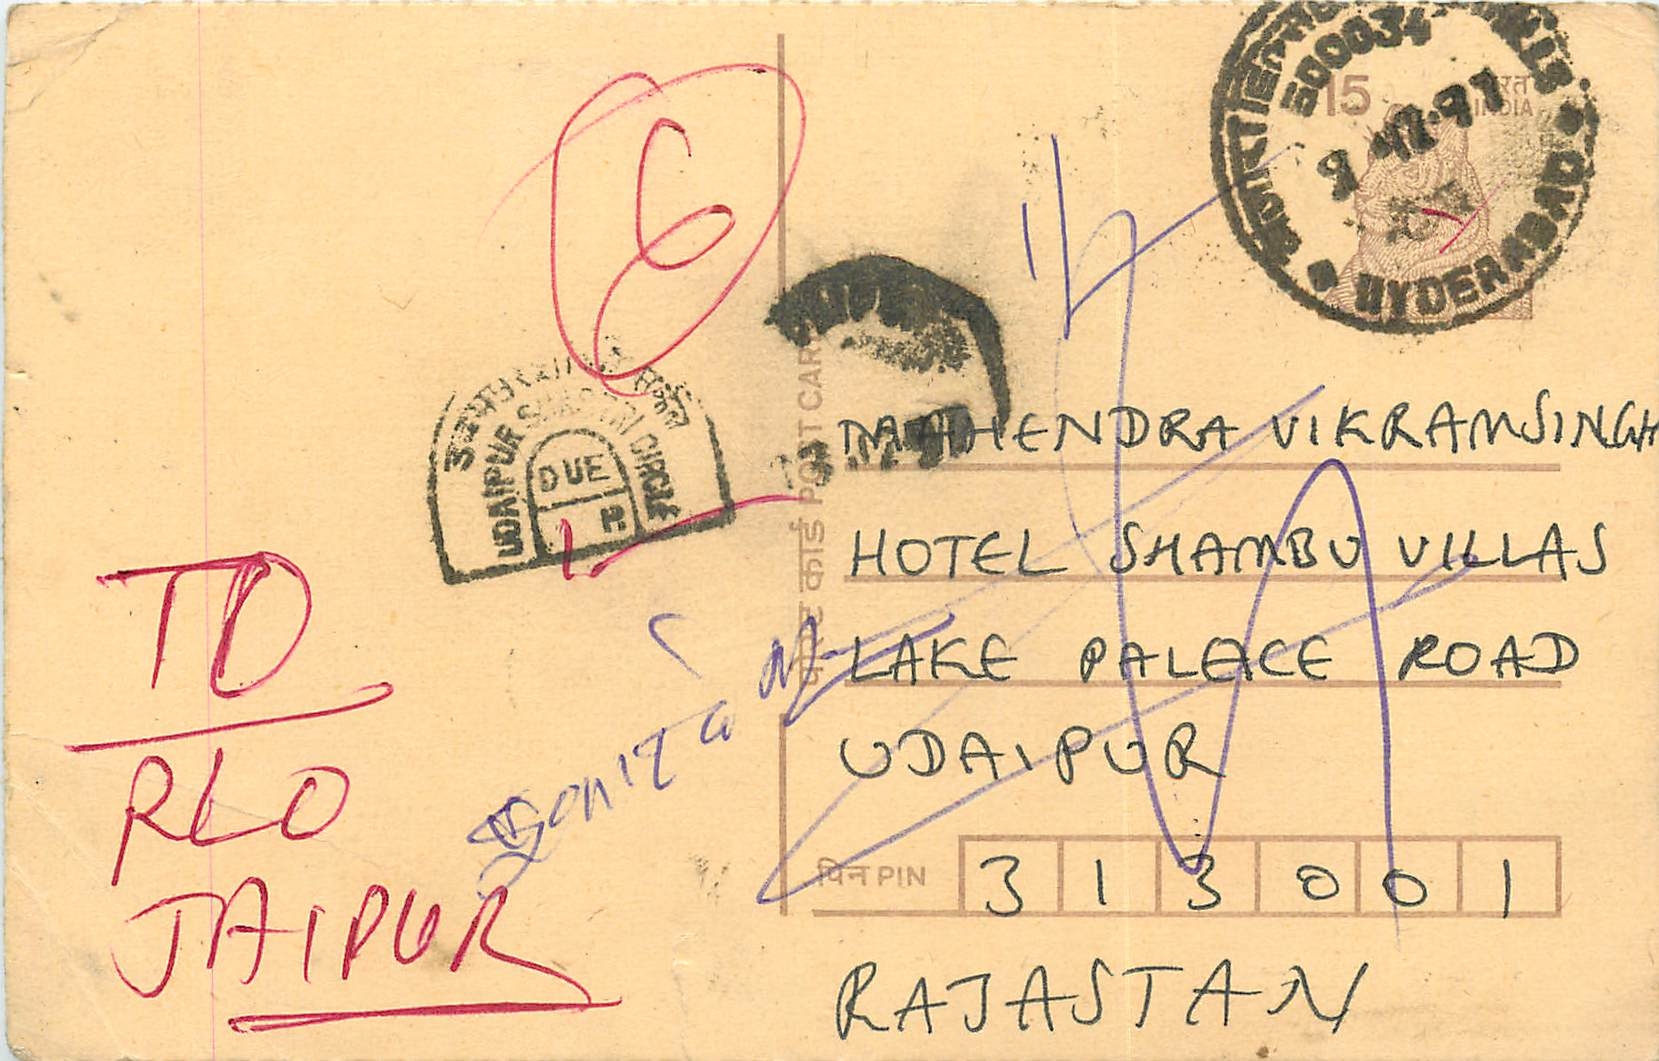 15
भारत
INDIA
500034
HYDERABAD
6
UDAIPUR SHASTRI CIRCLE
DUE
पोस्ट कार्ड POST CARD
MAHENDRA VIKRAMSINGH
HOTEL SHAMBU VILLAS
LAKE PALACE ROAD
UDAIPUR
पिन PIN
313001
RAJASTAN
TO
RLO
JAIPUR